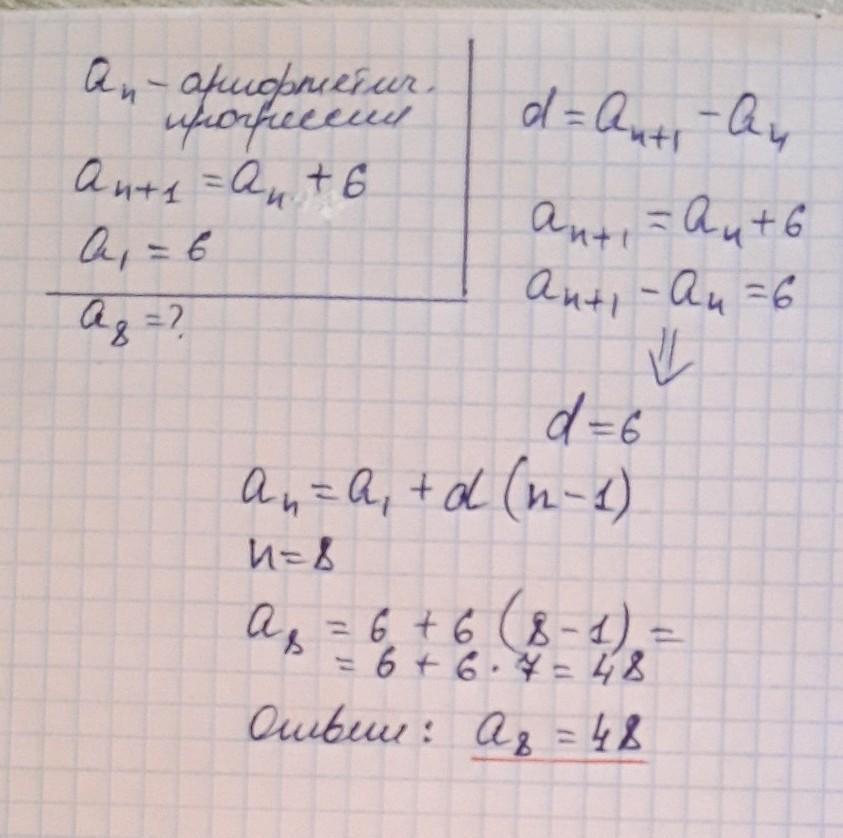 aₙ – арифметич.
прогрессия
aₙ₊₁ = aₙ + 6
a₁ = 6
a₈ = ?
d = aₙ₊₁ – aₙ
aₙ₊₁ = aₙ + 6
aₙ₊₁ – aₙ = 6
⇓
d = 6
aₙ = a₁ + d (n – 1)
n = 8
a₈ = 6 + 6 (8 – 1) =
= 6 + 6 · 7 = 48
Ответ: a₈ = 48